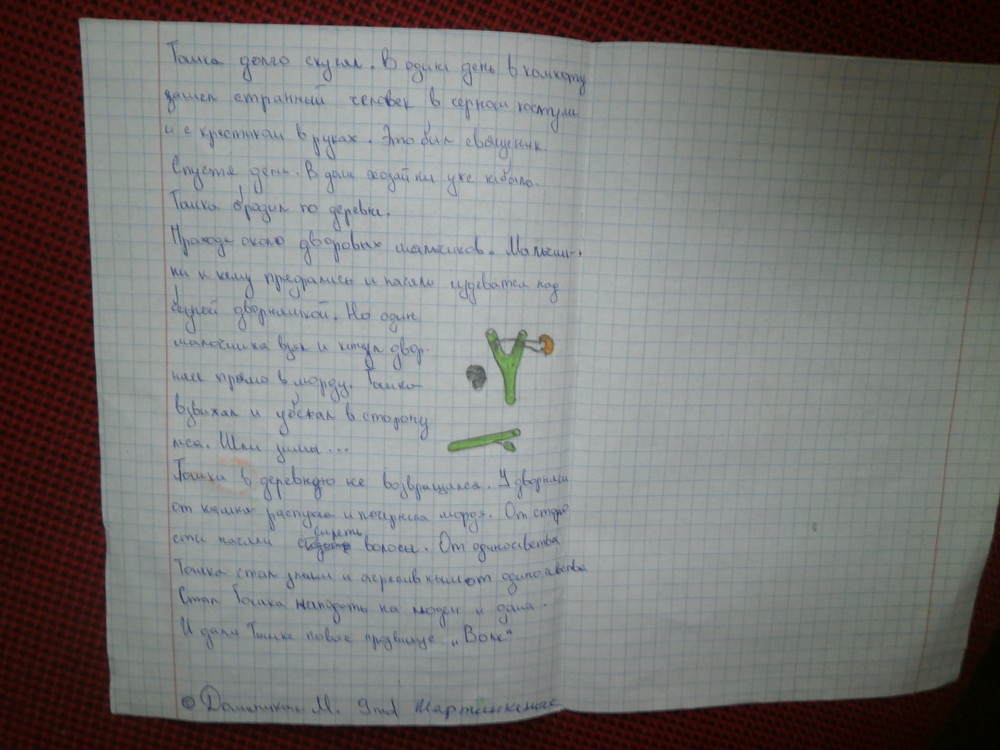 Тошка долго скучал. В один день в комноту
зашел странный человек в серном костули
и с крестиком в руках. Это бил священик.
Спустя день. В дом хозайки уже небыло.
Тошка бродил по деревни.
Проходя около дворовых мальчиков. Мальчи-
ки к нему предрались и начали издеватся над
бедной дворняшкой. Но один
малочишка взял и кинул двор-
нага прямо в морду. Тошка
взвизал и убежал в сторону
леса. Шли зимы...
Тошка в деревную не возвращалса. У дворняги
от камня распухла и почернела морда. От старо
сти начали сиреть волосы. От одиночевства
Тошка стал злым и агресивным от одиночевства
Стал Тошка нападать на людей и дома.
И дали Тошке новое прозвище „Волк“
© М. 9md